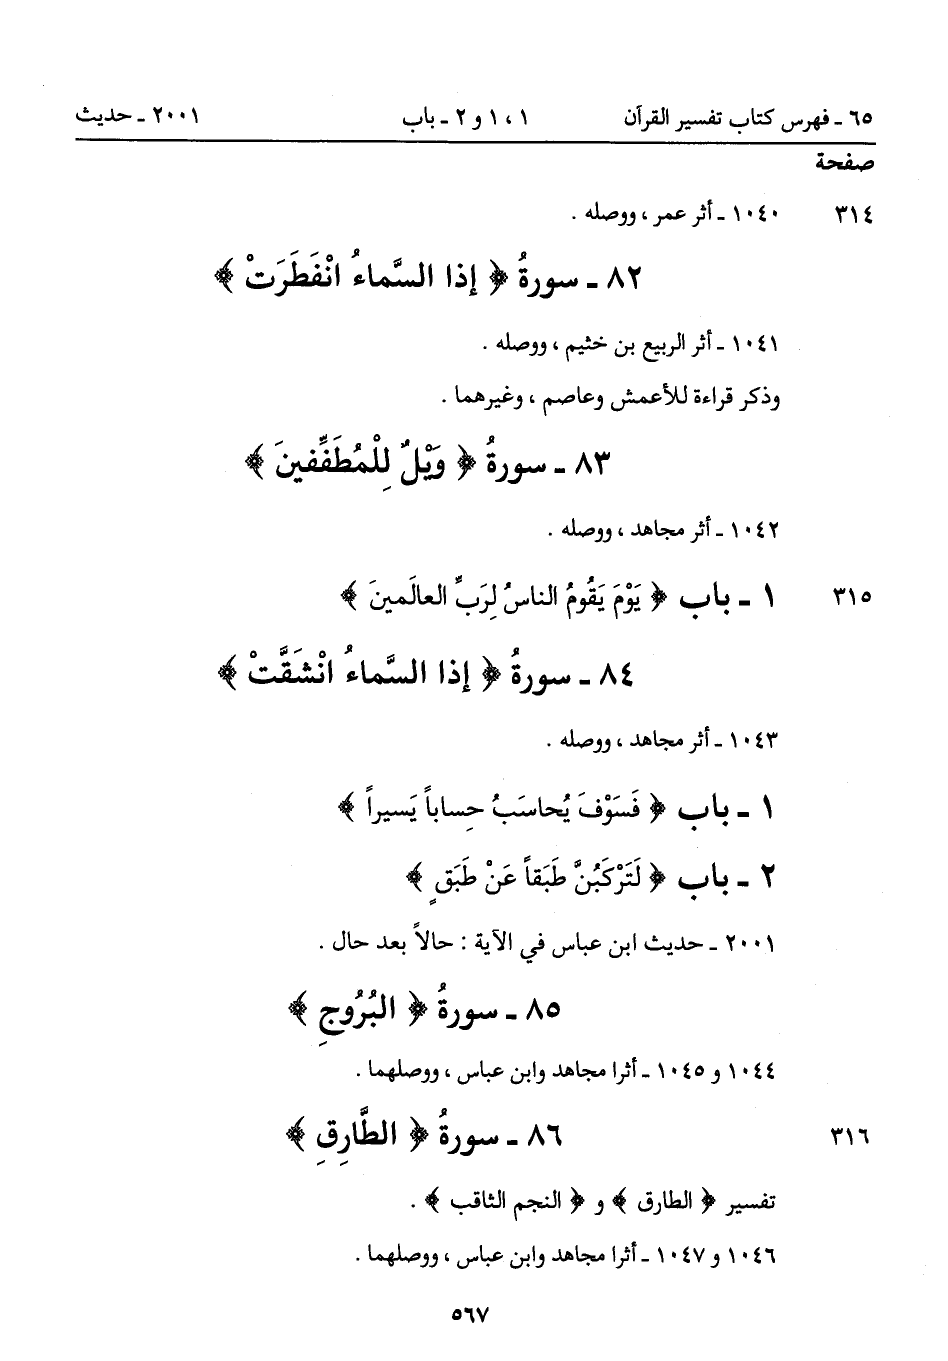 ٦٥ ـ فهرس كتاب تفسير القرآن ١ ، ١ و ٢ ـ باب ٢٠٠١ ـ حديث
صفحة
٣١٤ ١٠٤٠ ـ أثر عمر ، ووصله .
٨٢ ـ سورةُ ﴿ إذا السَّماءُ انْفَطَرَتْ ﴾
١٠٤١ ـ أثر الربيع بن خثيم ، ووصله .
وذكر قراءة للأعمش وعاصم ، وغيرهما .
٨٣ ـ سورةُ ﴿ وَيْلٌ لِلْمُطَفِّفينَ ﴾
١٠٤٢ ـ أثر مجاهد ، ووصله .
٣١٥ ١ ـ باب ﴿ يَوْمَ يَقُومُ الناسُ لِرَبِّ العالَمينَ ﴾
٨٤ ـ سورةُ ﴿ إذا السَّماءُ انْشَقَّتْ ﴾
١٠٤٣ ـ أثر مجاهد ، ووصله .
١ ـ باب ﴿ فَسَوْفَ يُحاسَبُ حِساباً يَسيراً ﴾
٢ ـ باب ﴿ لَتَرْكَبُنَّ طَبَقاً عَنْ طَبَقٍ ﴾
٢٠٠١ ـ حديث ابن عباس في الآية : حالاً بعد حال .
٨٥ ـ سورةُ ﴿ البُرُوجِ ﴾
١٠٤٤ و ١٠٤٥ ـ أثرا مجاهد وابن عباس ، ووصلهما .
٣١٦ ٨٦ ـ سورةُ ﴿ الطَّارِقِ ﴾
تفسير ﴿ الطارق ﴾ و ﴿ النجم الثاقب ﴾ .
١٠٤٦ و ١٠٤٧ ـ أثرا مجاهد وابن عباس ، ووصلهما .
٥٦٧